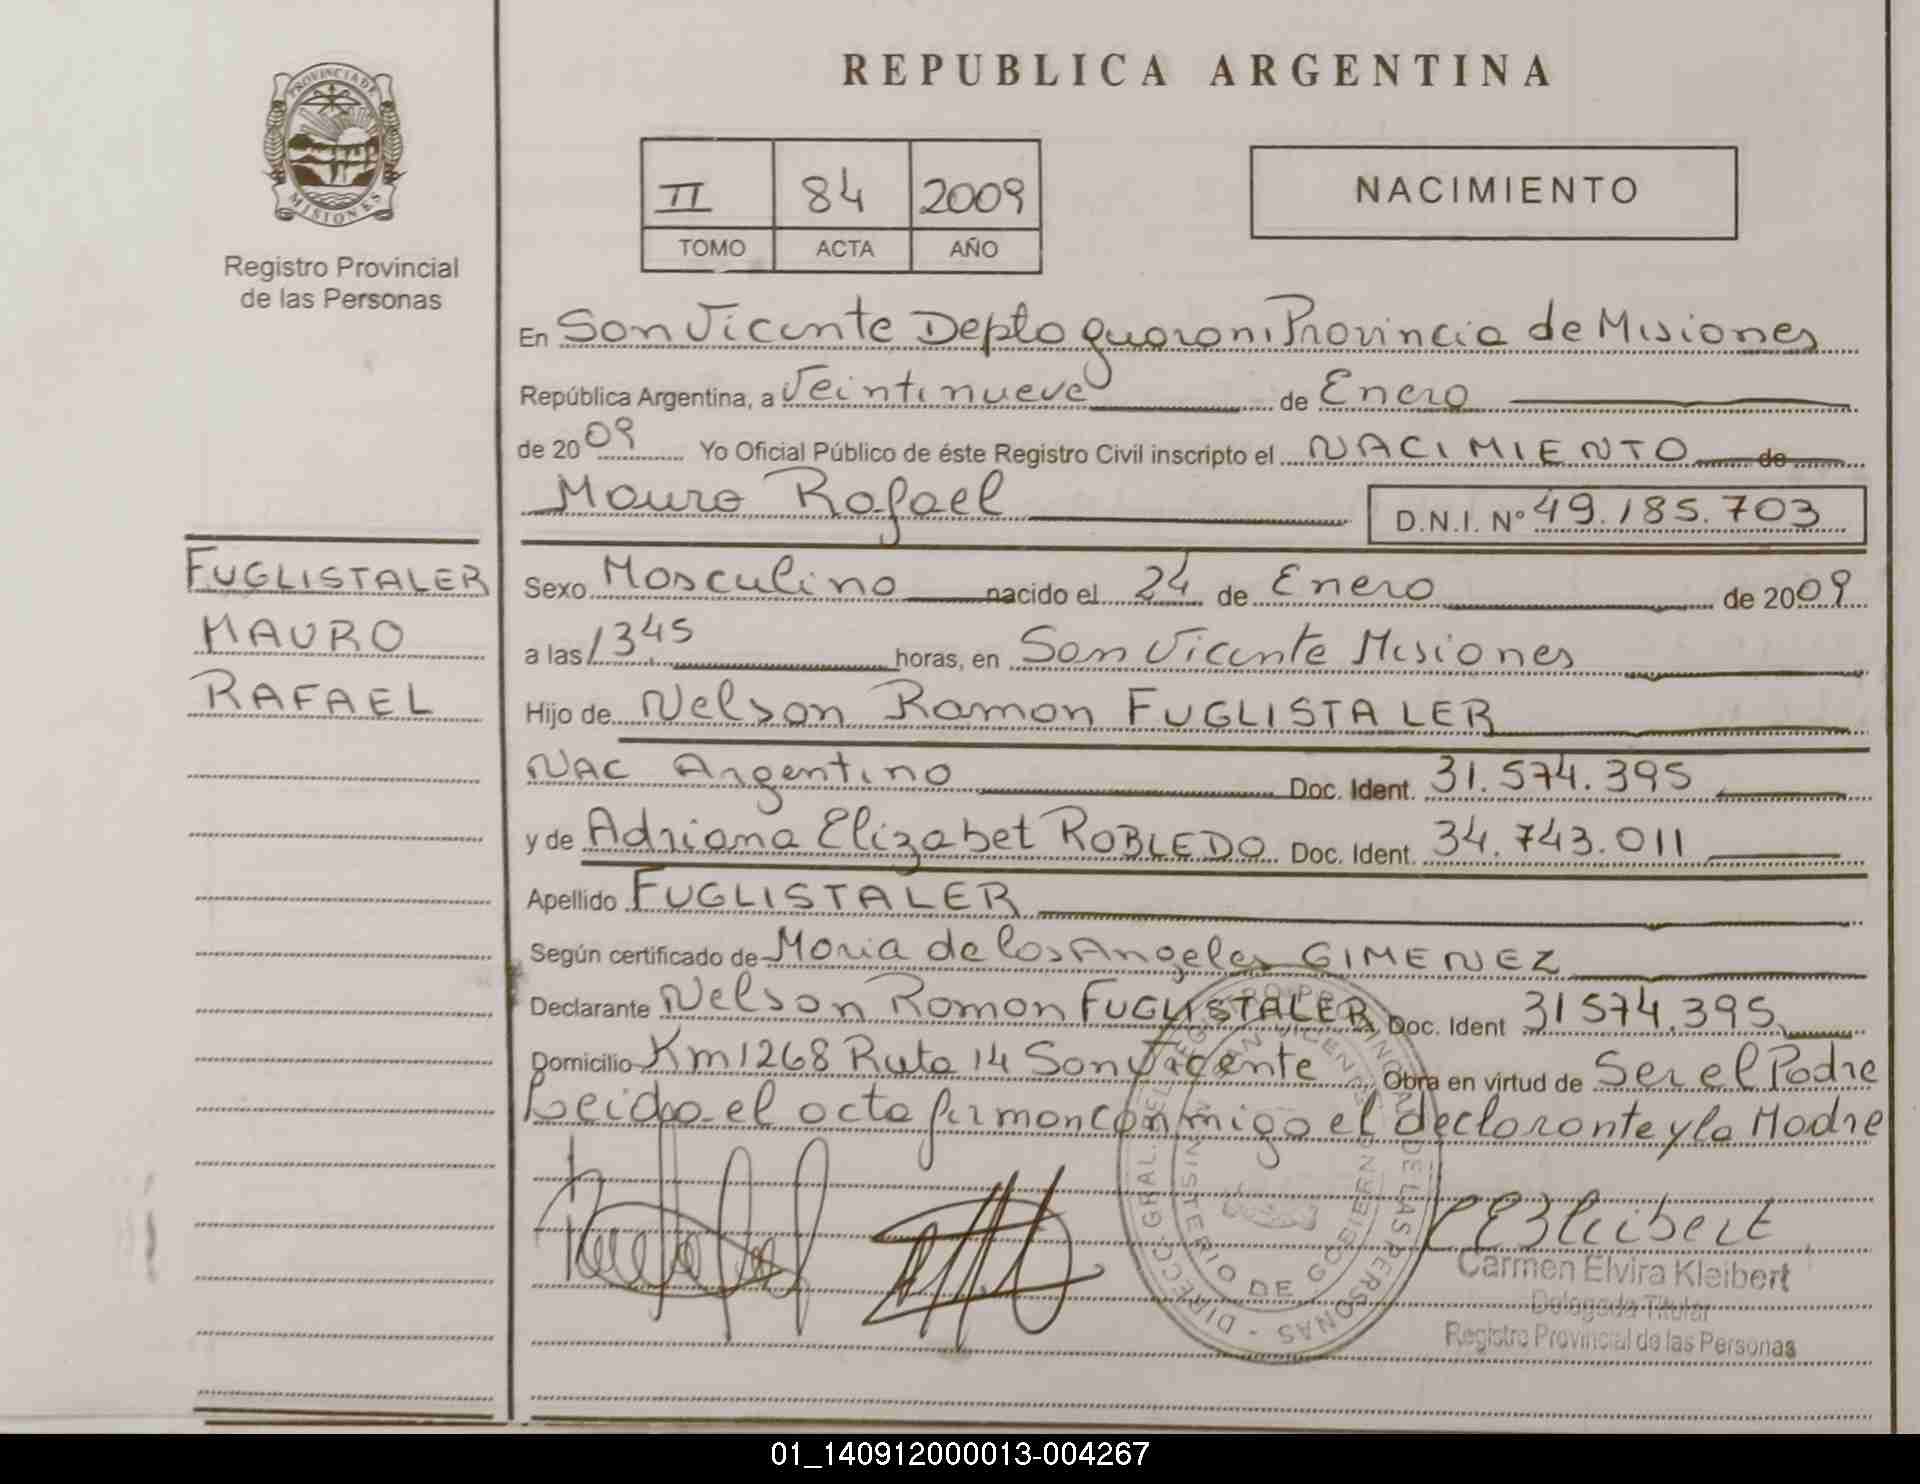 PROVINCIA DE
MISIONES
Registro Provincial
de las Personas
FUGLISTALER
MAURO
RAFAEL
REPUBLICA ARGENTINA
II 84 2009
TOMO ACTA AÑO
NACIMIENTO
En San Vicente Depto guarani Provincia de Misiones
República Argentina, a Veintinueve de Enero
de 2009 Yo Oficial Público de éste Registro Civil inscripto el NACIMIENTO de
Mauro Rafael D.N.I. Nº 49.185.703
Sexo Masculino nacido el 24 de Enero de 2009
a las 1345 horas, en San Vicente Misiones
Hijo de Nelson Ramon FUGLISTALER
NAC Argentino Doc. Ident. 31.574.395
y de Adriana Elizabet ROBLEDO Doc. Ident. 34.743.011
Apellido FUGLISTALER
Según certificado de Maria de los Angeles GIMENEZ
Declarante Nelson Ramon FUGLISTALER Doc. Ident 31574.395
Domicilio Km 1268 Ruta 14 San Vicente Obra en virtud de Ser el Padre
Leida el acta firman conmigo el declarante y la Madre
DIRECC. GRAL. DEL REGISTRO PROVINCIAL DE LAS PERSONAS
MINISTERIO DE GOBIERNO
SAN VICENTE
CEKleibert
Carmen Elvira Kleibert
Delegada Titular
Registro Provincial de las Personas
01_140912000013-004267